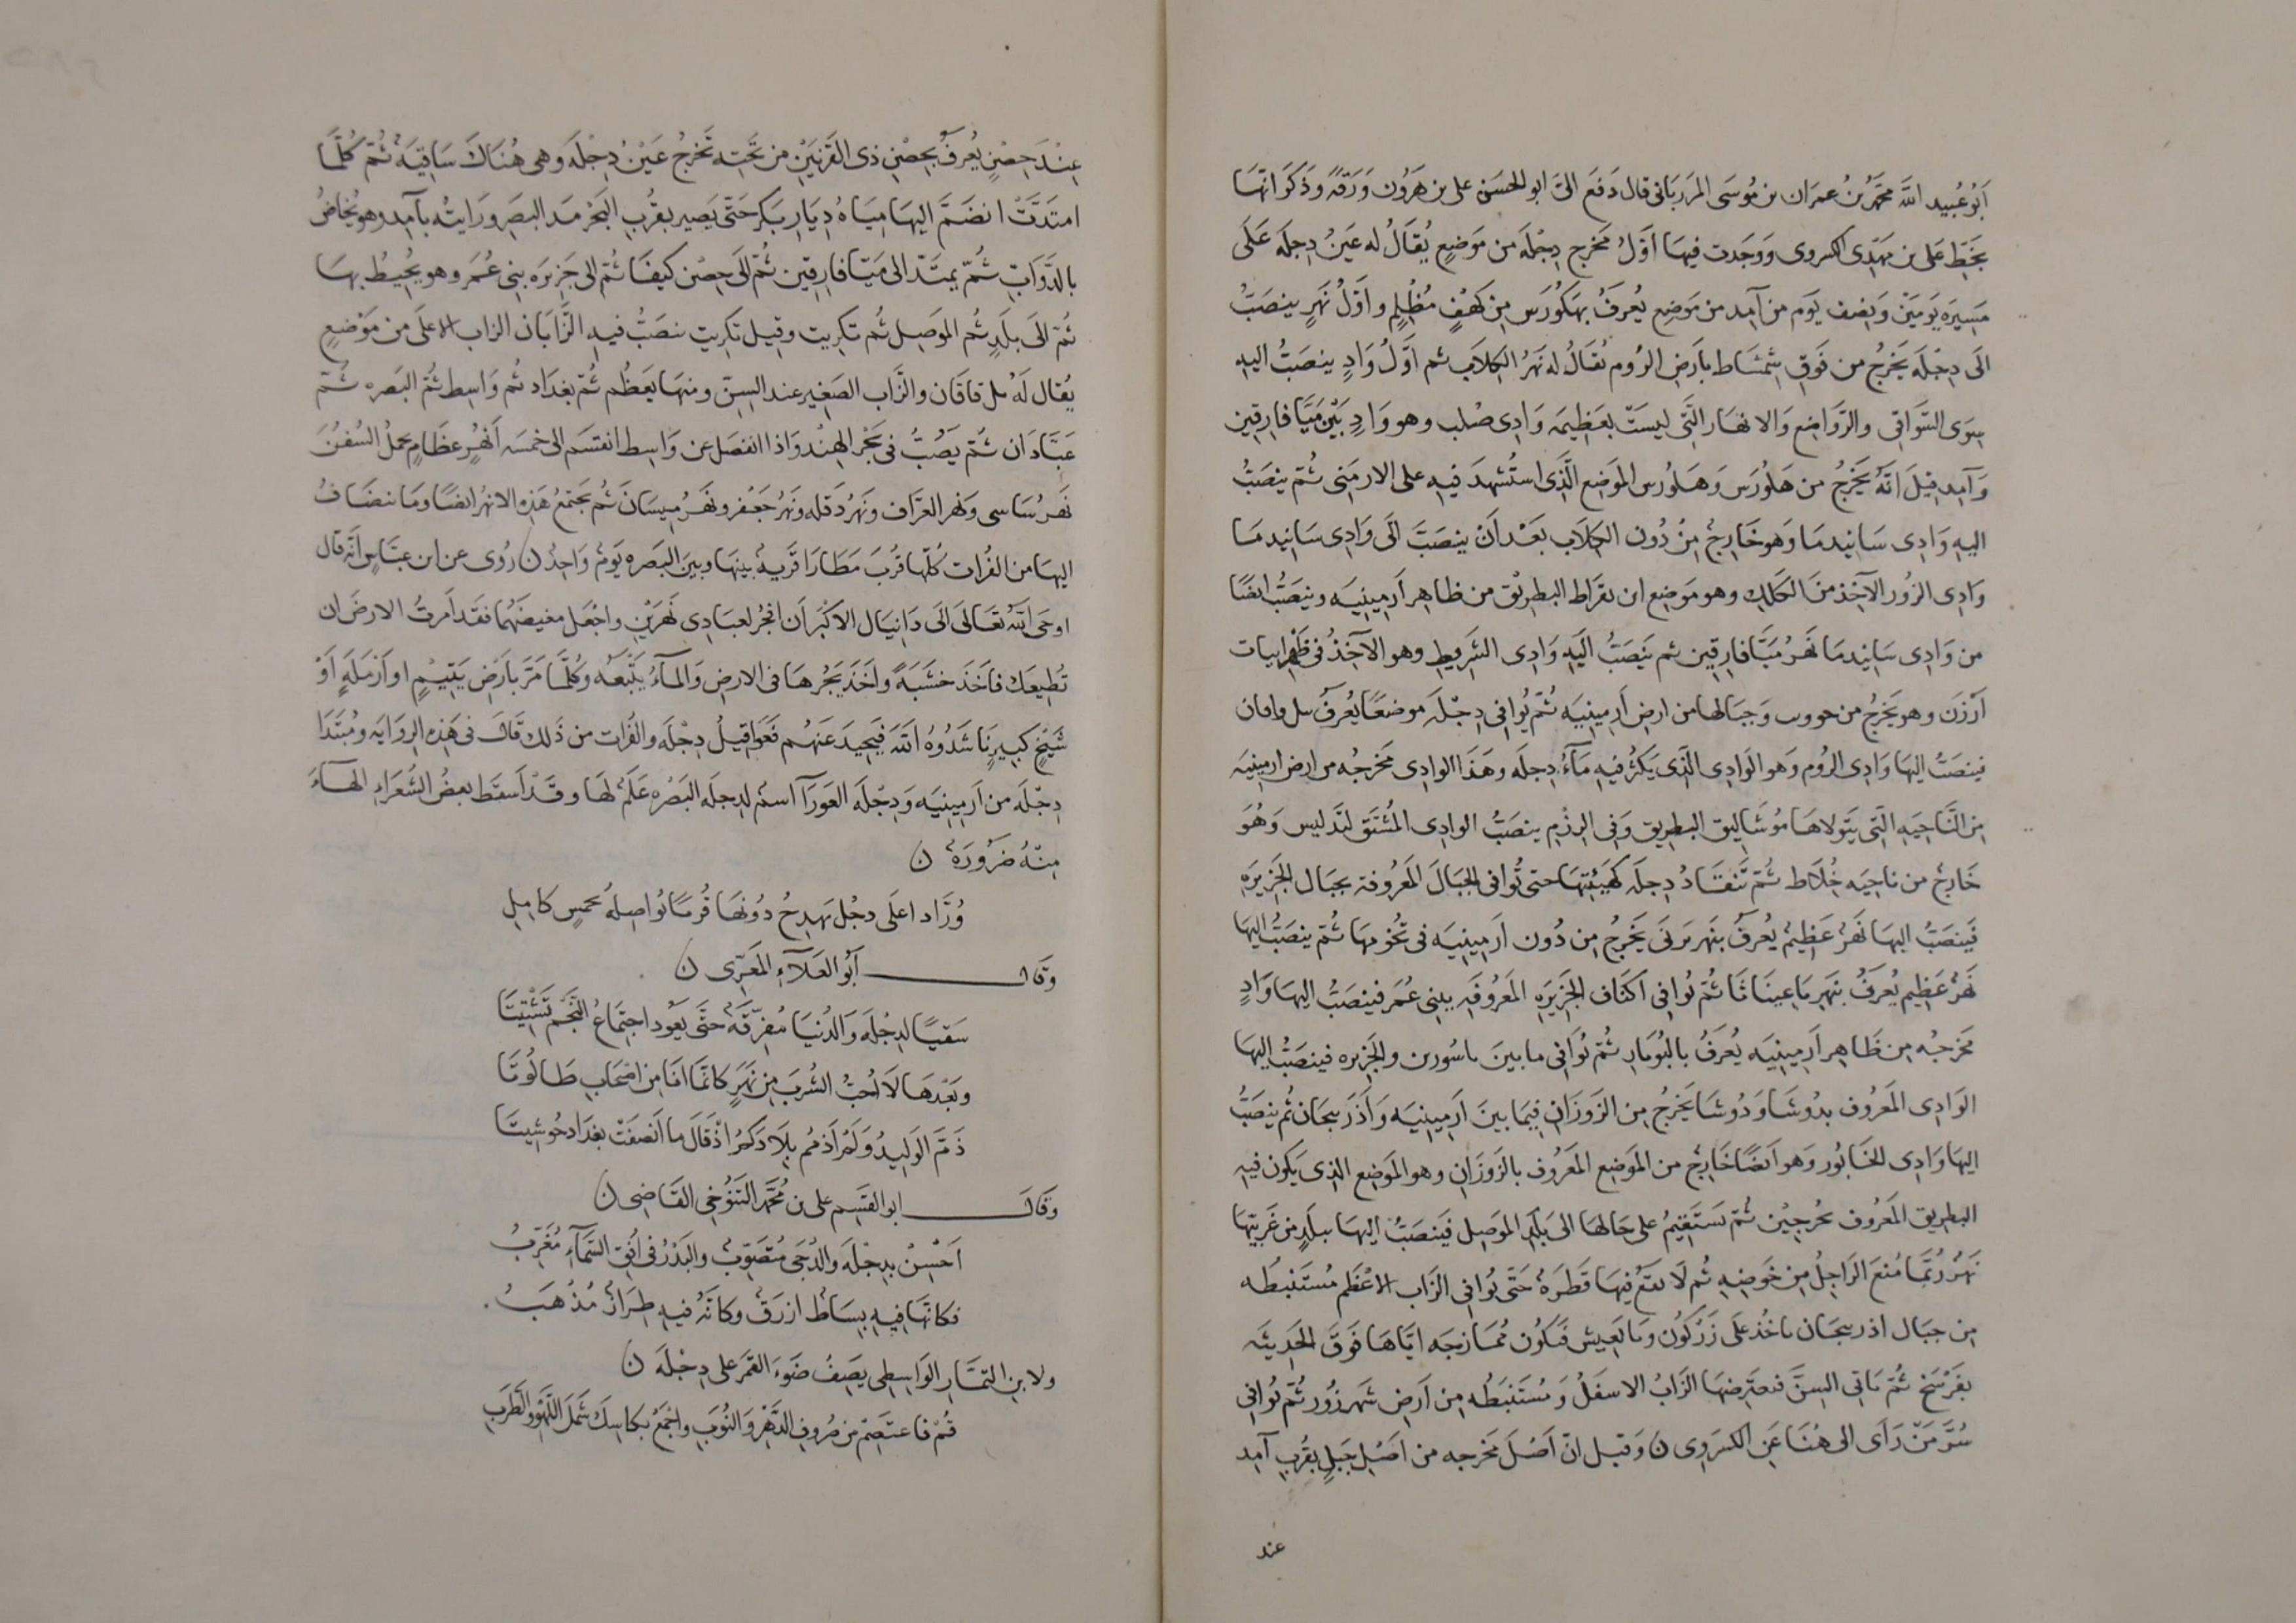 اَبُو عُبيد اللّه محَمّدُ بنُ عمرَان بن مُوسَى المَرزبَانى قال دَفَع الىَّ ابو الحسَن على بن هَرُون وَرَقَةً وَذكَر انهّا
بخَطّ عَلى بن مَهدِّى الكسروى وَوَجَدت فيهَا اَوَّلُ مَخرج دِجْلَة من مَوضِعٍ يُقَالُ له عَينُ دِجلَة عَلَى
مَسِيرَة يَومَيْن وَنِصْف يَوم من آمِد من مَوضِعٍ يُعرَفُ بهَكُورَس مِن كَهْفٍ مُظْلِمٍ واوّلُ نَهرٍ ينصَبُّ
الَى دِجْلَة يَخرُجُ من فَوق شِمشَاط بارَض الرُوم يُقَالُ له نَهرُ الكِلابِ ثم اَوَّلُ وَادٍ ينصَبُّ اليهِ
سِوَى السَّواقى والرَّوَاضِع وَالانهَار الّتَى ليسَتْ بعَظِيمَه وَادِى صُلب وهو وَادٍ بَيْنَ مَيَّافارِقين
وَآمِد قِيلَ انّهُ يَخرُجُ من هَلُورَس وَهَلُورُس الموَضِع الَّذِى استُشهدَ فيهِ على الارمَنى ثُمّ ينصَبُّ
اليهِ وَادِى سَانِيدمَا وَهو خَارِجٌ مِنْ دُون الكِلاَب بَعْد اَنْ ينصَبَّ الَى وَادِى سَانيدمَا
وَادِى الزُور الآخِذ مِنَ الكَلكِ وهو مَوضِع ابن بقرَاط البطرِيق من ظاهِر اَرمِينِيَه وينصَبُّ ايضًا
من وَادِى سَانِيدمَا نَهرُ مَيَّافارِقين ثم يَنصَبُّ الَيهِ وَادِى الشَرِبط وهو الآخِذُ فى ظَهرابيات
اَرْزَن وهو يَخرُجُ من حووب وَجبَالها من ارض اَرمِينِيَه ثُمّ يُوافى دِجْلَة موضعًا يُعرَفُ بتل وافان
فينصَبُّ اليهَا وَادِى الرُوم وَهو الَوَادِى الَّذِى يَكثُر فيهِ مَآءُ دِجلَه وهَذَا الوادِى مَخرجُه من ارض ارمينيَه
مِنَ النَّاحِيَه الّتى يَتَولاهَا مُوشَالِيق البطرِيق وَفى الرزْمِ ينصَبُّ الوادِى المُشْتَق لبَدليس وَهُوَ
خَارِجٌ من ناحِيَه خُلَاط ثُمّ تَنقَادُ دِجلَه كَهَيئتِهَا حتى تُوافى الجبَالَ المَعرُوفة بجبَال الجَزِيرَهِ
فَينصَبُّ اليهَا نَهرٌ عَظِيمٌ يُعرَفُ بنَهر يَرنَى يَخرُجُ مِن دُون اَرمِينِيَه فى تُخُومهَا ثُمّ ينصَبُّ اليهَا
نَهرٌ عَظِيم يُعرَفُ بنَهرِ باعِينَاثَا ثُمّ تُوافى اكنَاف الجَزِيرَهِ المَعرُوفَهِ ببنى عُمَر فينصَبُّ اليهَا وَادٍ
مَخرَجُه مِن ظَاهِر اَرمِينِيَه يُعرَفُ بالبُويَارِ ثُمّ تُوَافى مابَينَ باسُورين والجَزِيره فينصَبُّ اليهَا
الوَادِى المَعرُوف بدُوشَا وَدُوشَا يَخرُجُ مِن الزَوَزَانِ فِيمَا بينَ اَرمِينِيَه وَاَذَربيجَان ثُم ينصَبُّ
اليهَا وَادِى الخَابُور وَهو اَيضًا خَارِجٌ من المَوَضِع المَعرُوف بالزَوزَانِ وهو الموَضِع الذِى يَكون فيهِ
البطرِيق المَعرُوف بجُرجِيْن ثُمّ تَستَقِيمُ على حَالهَا الى بَلَد المَوصِل فَينصَبُّ اليهَا ببَلَدٍ من غَربيّهَا
نَهرٌ رُبَّمَا مُنعَ الرَاجِلُ مِن خَوضِهِ ثُم لَا يقَع فيهَا قَطرَهٌ حَتَّى تُوافى الزَاب الاعْظَم مُستَنبطُه
مِن جبَال اذربيجَان ياخُذ علَى زَرَكُون وَبابَغيش فَتكُون مُمَازجَه ايّاهَا فَوقَ الحَدِيثَه
بفَرْسَخ ثُمّ تَاتى السِنّ فَيعتَرضهَا الزَابُ الاسفَلُ وَمُستَنبطُه مِن اَرضِ شَهرزُور ثُمّ تُوافى
سُرَّ مَنْ رَأَى الى هُنَا عَن الكسرَوى ن وَقيل انّ اَصْلَ مَخرجِه من اَصْلِ جَبلٍ بقُربِ آمِد
عند
عِنْدَ حِصْنٍ يُعرَفُ بِحِصْنِ ذى القَرنَيَنْ مِن تَحَتِه تَخرجُ عَيْنُ دِجْلَة وهى هُنَاكَ سَاقِيَهٌ ثُمّ كُلَّمَا
امتَدَّتْ انضَمَّ اليهَا مِيَاهُ دِيَارِ بَكر حَتَّى يَصِير بقُربِ البَحْر مَد البَصَر وَرَايتُه بآمِد وهو يُخاضُ
بالدَّوَابّ ثُمّ يمَتدّ الى مَيّافارِقِين ثُمّ الىَ حِصْن كَيفَا ثُمّ الى جَزيرَه بنى عُمَر وهو يُحِيطُ بهَا
ثُمّ الَى بلَدٍ ثُم الموَصِل ثُم تكريت وقيل تكرِيت ينصَبُّ فيهِ الزَّابَان الزاب الاعلَى من مَوْضعٍ
يُقال لَهُ تل فافان والزَّاب الصَغِير عند السِنّ ومنهَا يعَظُم ثُمّ بغدَاد ثم وَاسِط ثُمّ البَصره ثُمّ
عَبَّادَان ثُمّ يَصُبُّ فى بَحْر الهِنْد وَاذا انفصَل عن وَاسِط انقسَم الى خمسَه اَنهُرٍ عظَامٍ يحملُ السُفُنَ
نَهرُ سَاسى وَنهر الغرَّاف ونَهرُ دَقله ونَهرُ جَعْفر ونَهرُ مِيسَانَ ثُم تجَتمعُ هَذِهِ الانهُر ايضًا ومَا ينضَافُ
اليهَا من الفُرات كُلّهَا قُربَ مَطَارَا قَريهٌ بينهَا وبين البَصَره يَومٌ وَاحِدٌ ن رُوى عن ابن عبَّاسٍ اَنّهُ قال
اوحَى اللّهُ تعَالَى الَى دَانِيَال الاكبَر اَن افجُر لعبَادِى نَهرَيْنِ واجْعَل مغيضَهُمَا فقَد اَمرتُ الارضَ ان
تُطِيعَك فاَخَذ خشَبَةً واخَذَ يَجُرهَا فى الارض وَالمآءُ يتْبعُه وكُلَّمَا مَرّ بأرَضِ يَتِيْمٍ او اَرْمَلَةٍ اَوْ
شَيْخٍ كبِيرٍ نَاشَدُوهُ اللّه فَيَحِيدَ عَنهُم فَعَواقِيلُ دِجْلَه والفُرات من ذَلك قَالَ فى هَذِهِ الرِوَايه ومُبَتدَا
دِجْلَه من اَرمِينِيَه وَدِجْلَه العَورَآ اسْمٌ لدِجلَه البَصْره عَلَمٌ لهَا وقَدْ اَسقَط بعضُ الشُعَراءِ الهآءَ
مِنْهُ ضَرُورَهً ن
وُرَّاد اعلَى دجْل يَهدِجُ دُونهَا قُربًا يُواصِلهُ بخمسٍ كامِلِ
وقال ابُو العَلاَءِ المعَرِّى ن
سَقيًا لدِجْلَهَ وَالدُنيَا مُفرِّقَةٌ حتَّى يَعُود اجتمَاعُ النَّجْم تَشْتِيتَا
وبَعْدهَا لاَ اُحبُّ الشُربَ مِن نَهرٍ كانّمَا اَنَا مِن اصْحَابِ طَالُوتَا
ذَمّ الوَليدُ وَلَم اَذمُم بِلاَدَكُم اذْقَال ما اَنصفَتْ بغدَاد حُوشِيتَا
وَقَالَ ابو القَسِم على بن مُحَمّد التَنُوخى القَاضِى ن
اَحْسِنْ بدِجْلَهَ والدُجَى مُتصَوّبٌ والبَدْرُ فى اُفُقِ السَّمآءِ مُغَرِّبُ
فكانّهَا فيهِ بِسَاطٌ ازرَقٌ وكانّهُ فيهِ طِرَازٌ مُذْهَبُ .
ولابن التمَّارِ الوَاسِطِى يصِفُ ضَوءَ القمَر على دِجْلَه ن
قُمْ فاعتصِمْ من صُروفِ الدَّهْر والنُوَبِ واجْمَعْ بكاسِكَ شَمْلَ اللَّهْو والطَرَبِ